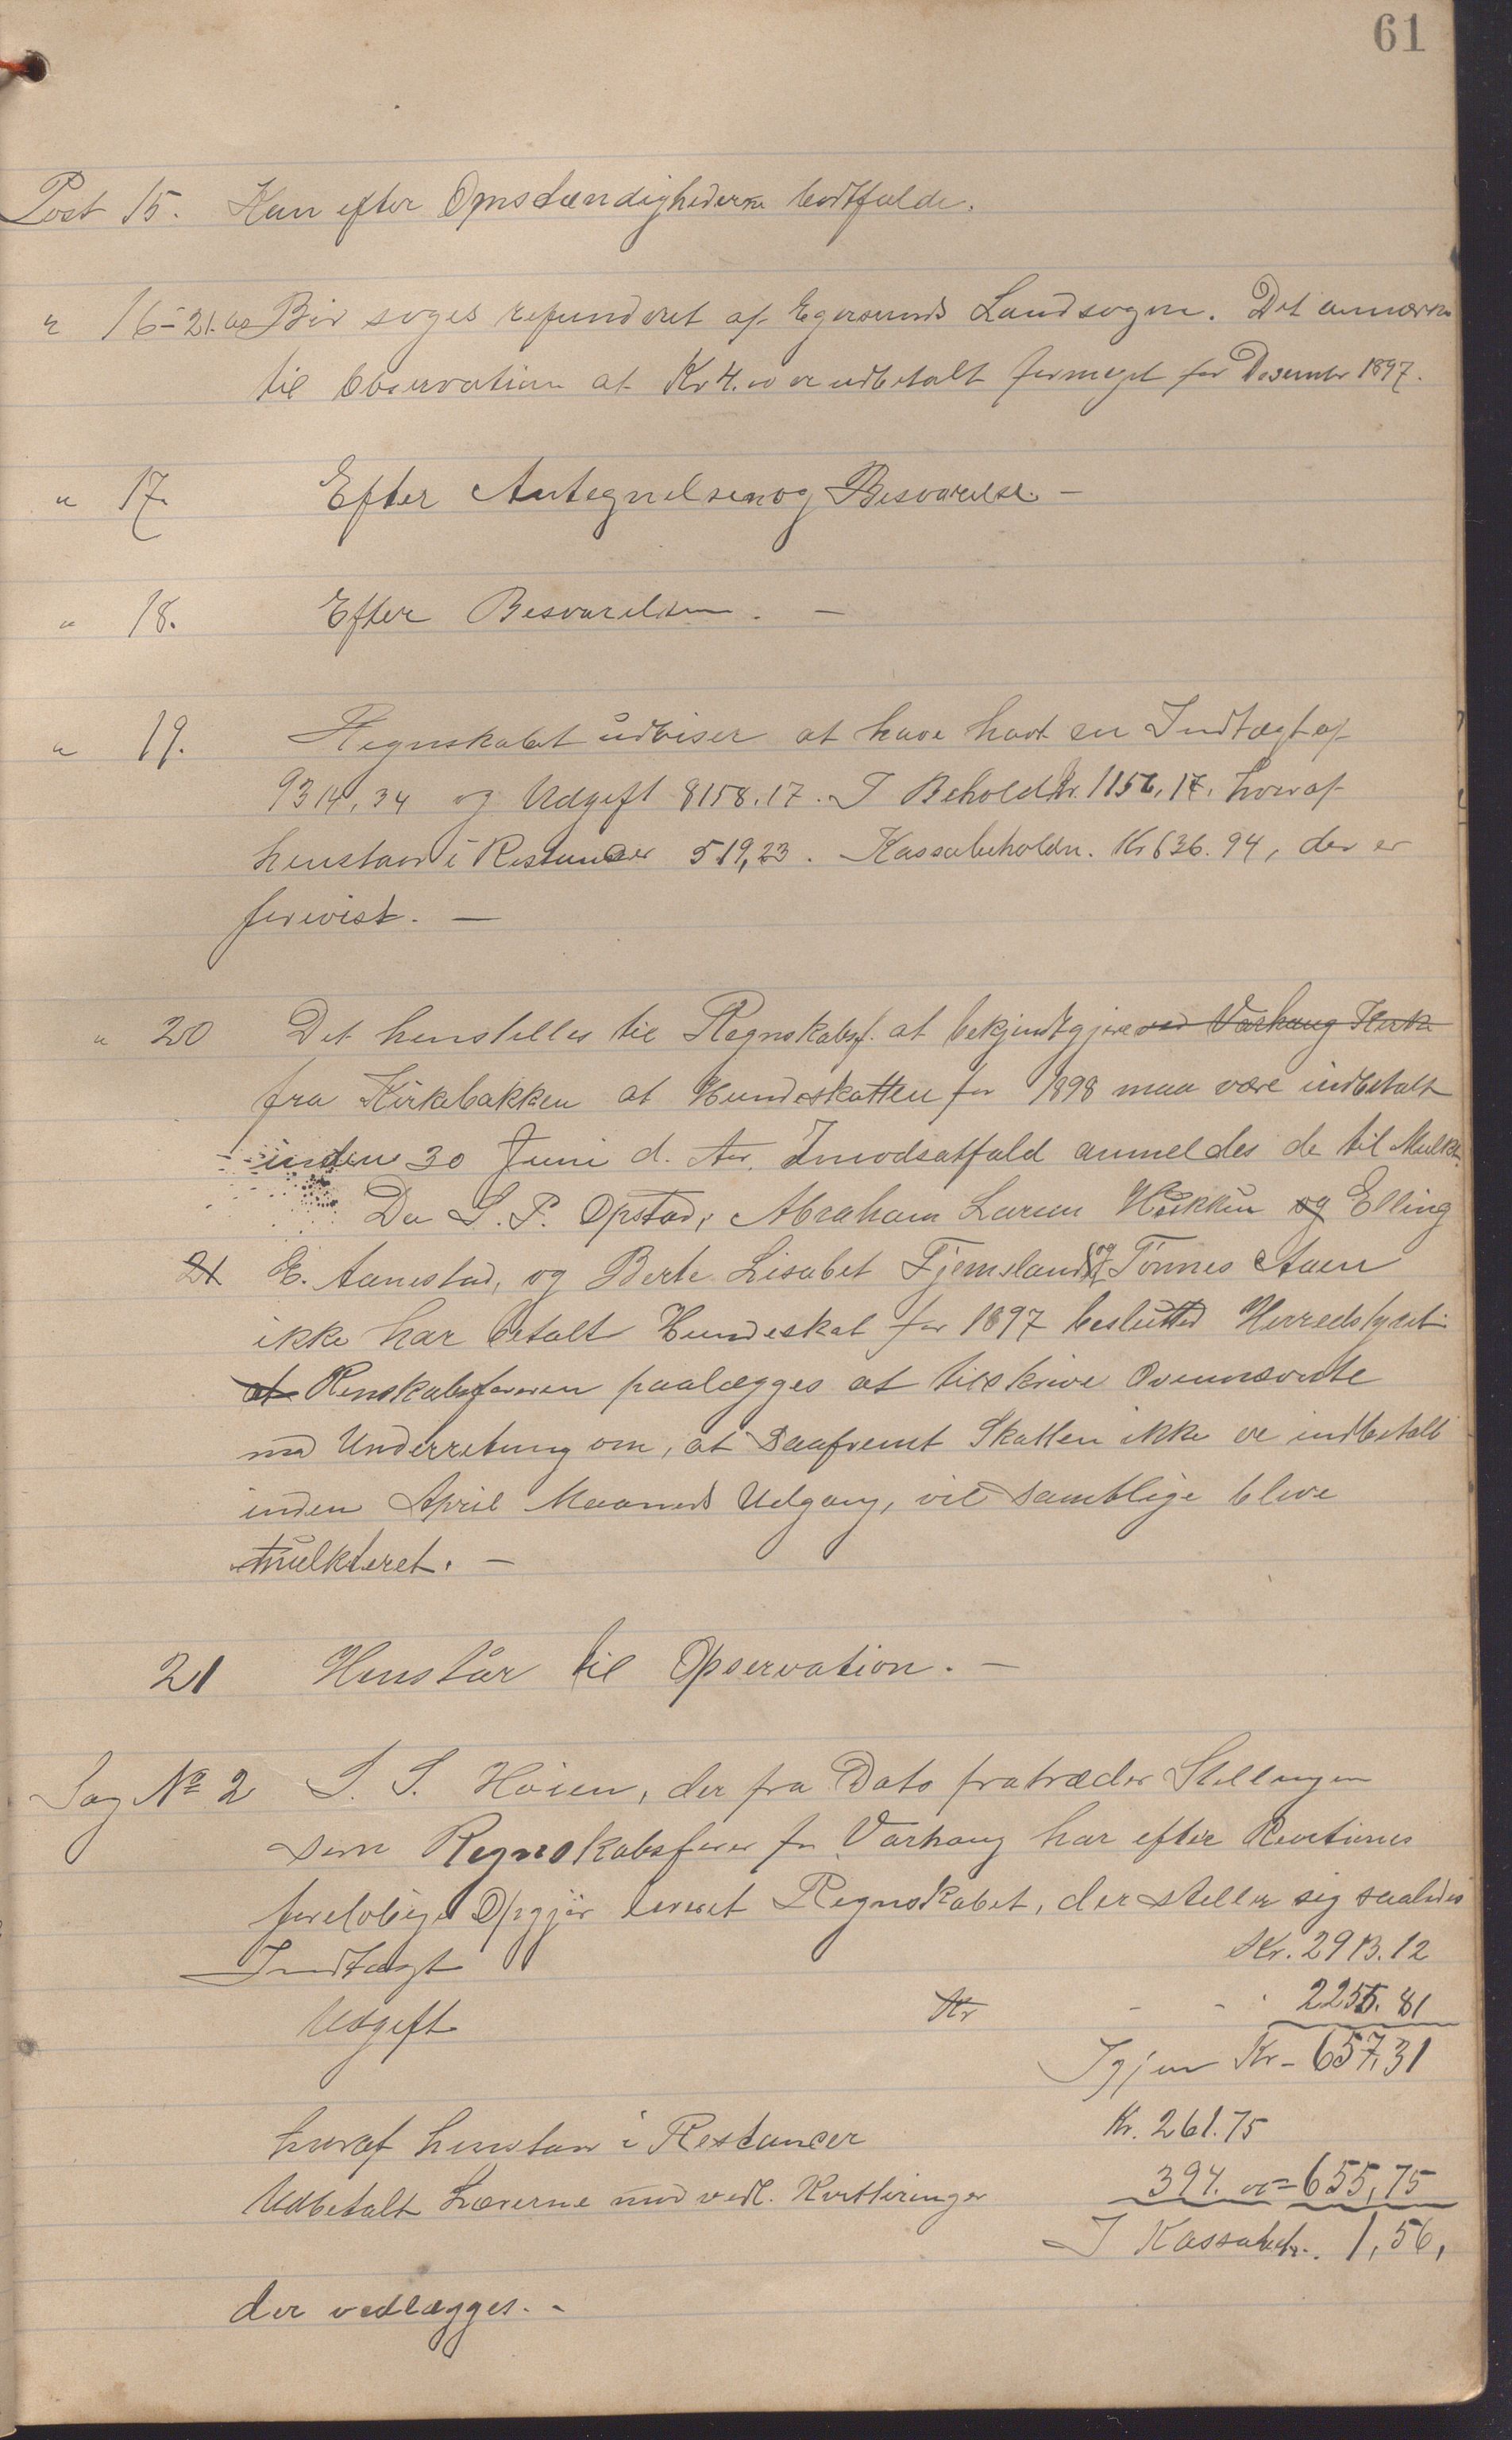 61
Post 15. Kan efter Omstændighederne bortfalde.
" 16-21. Bør søges refunderet af Egersunds Landsogn. Det anmærkes
til Observation at Kr 4.00 er udbetalt formeget for Desember 1897.
" 17. Efter Antegnelsen og Besvarelse. -
" 18. Efter Besvarelsen. -
" 19. Regnskabet udviser at have havt en Indtægt af
9314,34 og Udgift 8158.17. I Behold Kr. 1156,17. hvoraf
henstaar i Restancer 519,23. Kassabeholdn. Kr 636.94, der er
forevist. -
" 20 Det henstilles til Regnskabsf. at bekjendtgjøre ved Varhaug Kirke
fra Kirkebakken at Hundeskatten for 1898 maa være indbetalt
inden 30 Juni d. Aar, Imodsatfald anmeldes de til Mulkt.
Da S. P. Opstad, Abraham Larsen og Elling
21 E. Aanestad, og Berte Lisabet Fjemeland og Tönnes Aaen
ikke har betalt Hundeskat for 1897 beslutted Herredstyret
at Renskabsføreren paalægges at tilskrive Ovennævnte
med Underretning om, at Saafremt Skatten ikke er indbetalt
inden April Maaneds Udgang, vil samtlige blive
mulkteret. -
21 Henstår til Opservation. -
Sag No 2 S. S. Höien, der fra Dato fratræder Stellingen
som Regnskabsfører for Varhaug har efter Revisionens
foreløbige Opgjør leveret Regnskabet, der steller sig saaledes
Indtægt Kr. 2913.12
Udgift Kr - - 2255.81
Igjen Kr - 657,31
hvoraf henstaar i Restancer Kr. 261.75
Udbetalt Lærerne med vedl. Kvitteringer 394. 00 = 655,75
I Kassabeh. 1,56,
der vedlægges. -